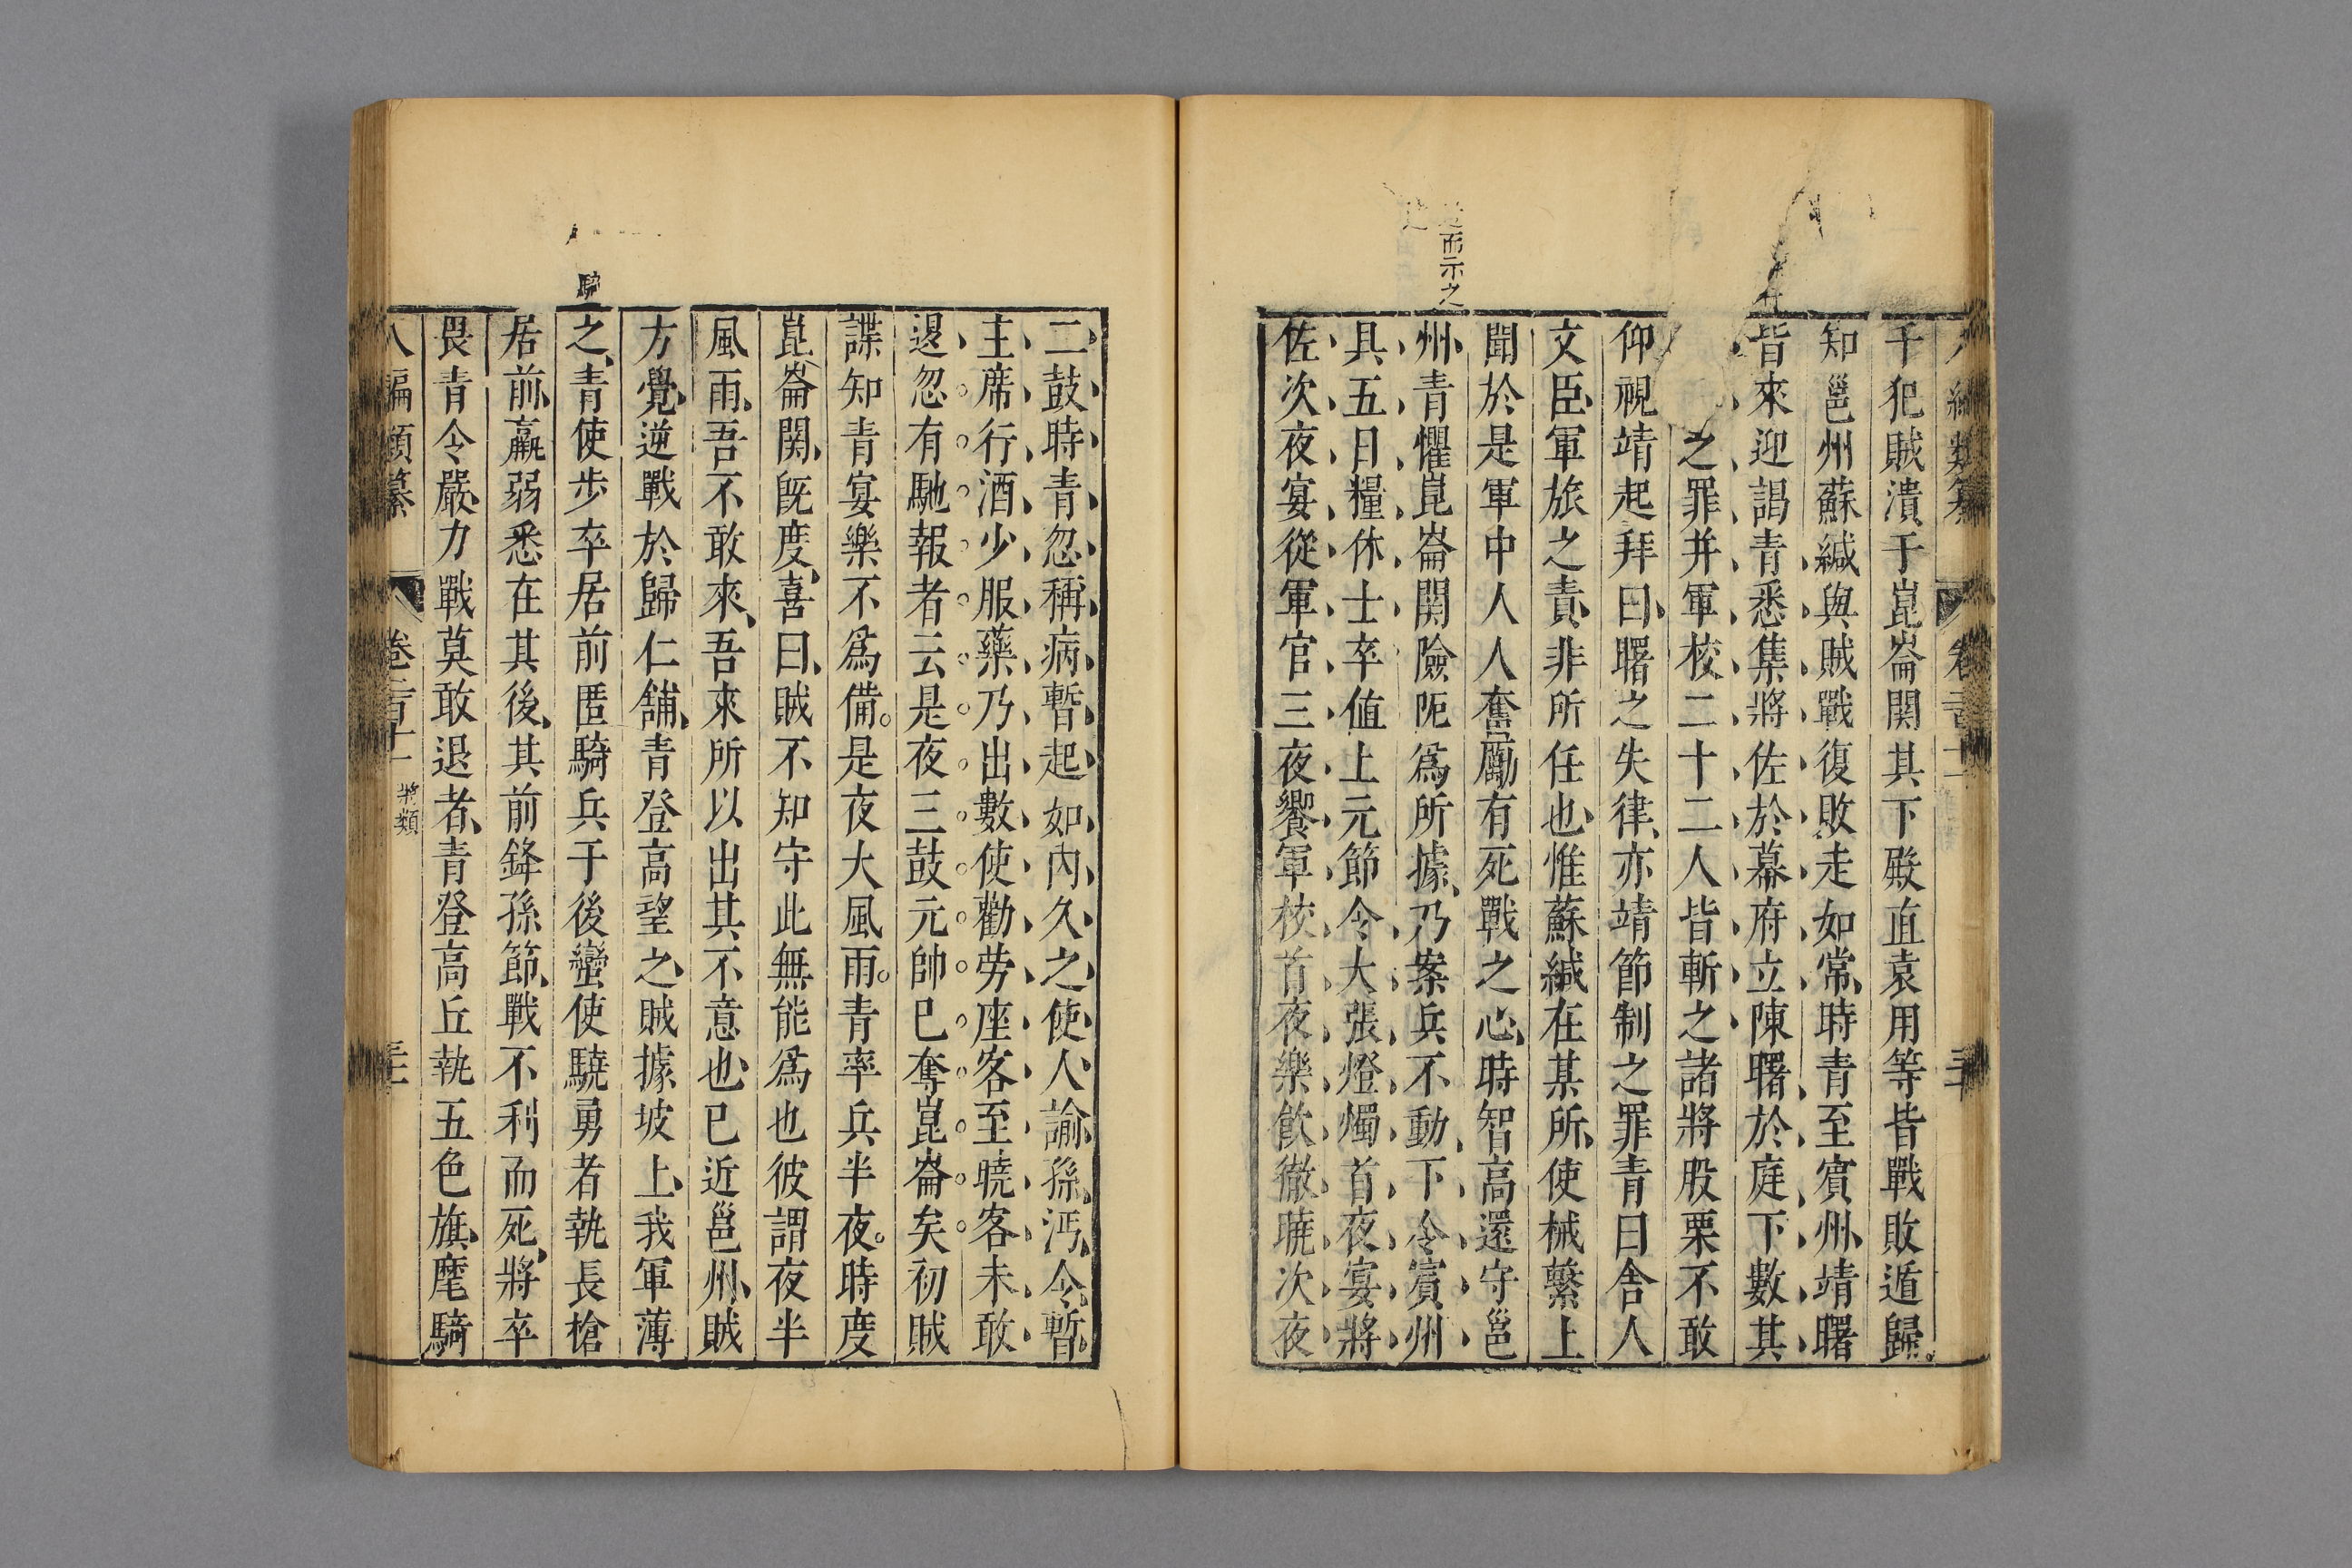 干犯賊潰于崑崙關其下殿直袁用等皆戰敗遁歸
知邕州蘇緘與賊戰復敗走如常時青至賓州靖曙
皆來迎謁青悉集將佐於幕府立陳曙於庭下數其
之罪并軍校二十二人皆斬之諸將股栗不敢
仰視靖起拜曰曙之失律亦靖節制之罪青曰舍人
文臣軍旅之責非所任也惟蘇緘在某所使械繫上
聞於是軍中人人奮勵有死戰之心時智高還守邕
州青懼崑崙關險阨爲所據乃案兵不動下令賓州
具五日糧休士卒值上元節令大張燈燭首夜宴將
佐次夜宴從軍官三夜饗軍校首夜樂飲徹曉次夜
而示之
二鼓時青忽稱病暫起如內久之使人諭孫沔令暫
主席行酒少服藥乃出數使勸勞座客至曉客未敢
退忽有馳報者云是夜三鼓元帥已奪崑崙矣初賊
諜知青宴樂不爲備是夜大風雨青率兵半夜時度
崑崙關既度喜曰賊不知守此無能爲也彼謂夜半
風雨吾不敢來吾來所以出其不意也已近邕州賊
方覺逆戰於歸仁舖青登高望之賊據坡上我軍薄
之青使步卒居前匿騎兵于後蠻使驍勇者執長槍
居前羸弱悉在其後其前鋒孫節戰不利而死將卒
畏青令嚴力戰莫敢退者青登高丘執五色旗麾騎
八編類纂 卷二百十一 將類 三十一